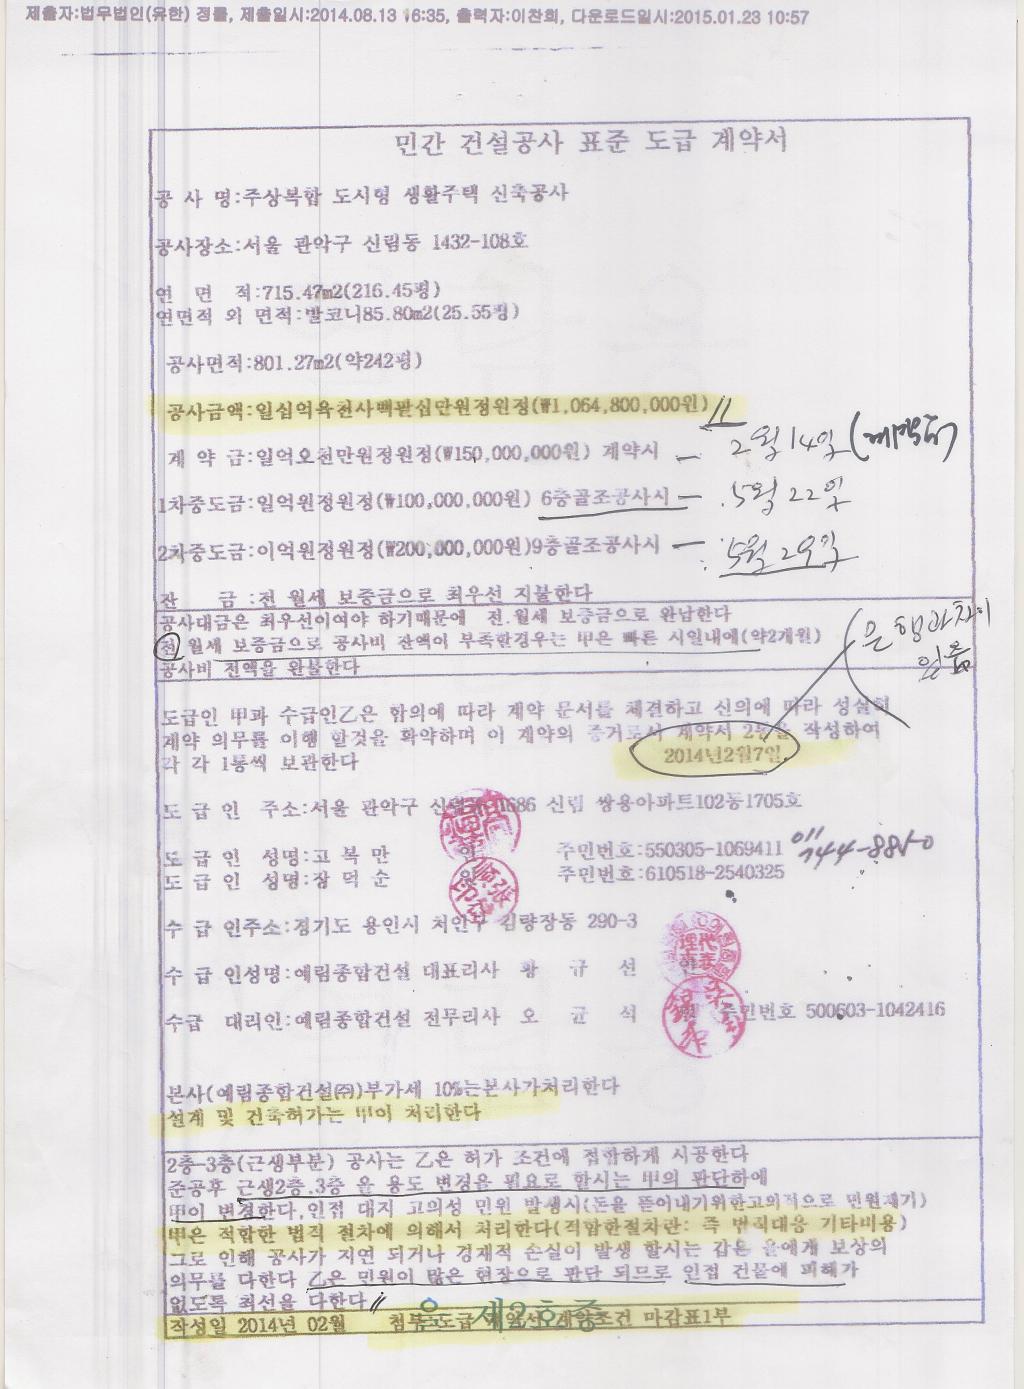 제출자:법무법인(유한) 정률, 제출일시:2014.08.13 16:35, 출력자:이찬희, 다운로드일시:2015.01.23 10:57
민간 건설공사 표준 도급 계약서
공 사 명:주상복합 도시형 생활주택 신축공사
공사장소:서울 관악구 신림동 1432-108호
연 면 적:715.47m2(216.45평)
연면적 외 면적:발코니85.80m2(25.55평)
공사면적:801.27m2(약242평)
공사금액:일십억육천사백팔십만원정원정(₩1,064,800,000원)
계 약 금:일억오천만원정원정(₩150,000,000원) 계약시 - 2월 14일
1차중도금:일억원정원정(₩100,000,000원) 6층골조공사시 - 5월 22일
2차중도금:이억원정원정(₩200,000,000원)9층골조공사시 - 5월 29일
잔 금:전 월세 보증금으로 최우선 지불한다
공사대금은 최우선이여야 하기때문에 전.월세 보증금으로 완납한다
전 월세 보증금으로 공사비 잔액이 부족할경우는 甲은 빠른 시일내에(약2개월)
공사비 전액을 완불한다
은행과 차이 있음
도급인 甲과 수급인乙은 합의에 따라 계약 문서를 체결하고 신의에 따라 성실히
계약 의무를 이행 할것을 확약하며 이 계약의 증거로서 계약서 2부을 작성하여
각 각 1통씩 보관한다
2014년2월7일
도 급 인 주소:서울 관악구 1686 신림 쌍용아파트102동1705호
도 급 인 성명:고 복 만 인 주민번호:550305-1069411
도 급 인 성명:장 덕 순 인 주민번호:610518-2540325
수 급 인주소:경기도 용인시 처인구 김량장동 290-3
수 급 인성명:예림종합건설 대표리사 황 규 선 인
수급 대리인:예림종합건설 전무리사 오 균 석 주민번호 500603-1042416
본사(예림종합건설㈜)부가세 10%는본사가처리한다
설계 및 건축허가는 甲이 처리한다
2층-3층(근생부분) 공사는 乙은 허가 조건에 접합하게 시공한다
준공후 근생2층.3층 을 용도 변경을 필요로 할시는 甲의 판단하에
甲이 변경한다.인접 대지 고의성 민원 발생시(돈을 뜯어내기위한고의적으로 민원제기)
甲은 적합한 법적 절차에 의해서 처리한다(적합한절차란: 즉 법적대응 기타비용)
그로 인해 공사가 지연 되거나 경재적 손실이 발생 할시는 갑은 을에게 보상의
의무를 다한다 乙은 민원이 많은 현장으로 판단 되므로 인접 건물에 피해가
없도록 최선을 다한다
을 제2호증
작성일 2014년 02월 첨부 도급 계약조건 마감표1부